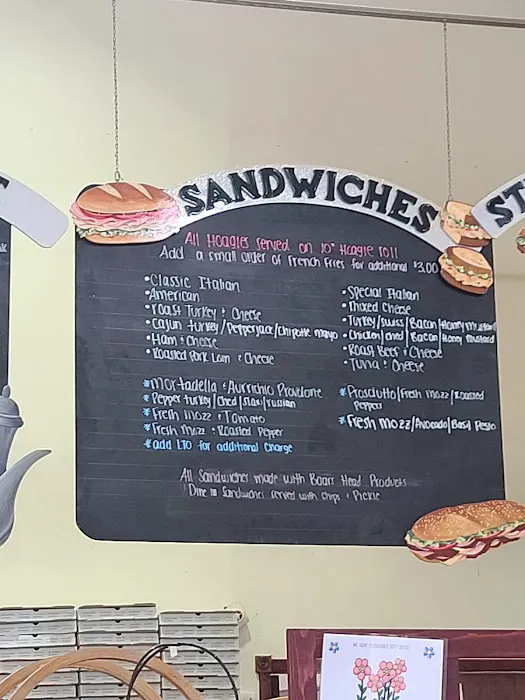 SANDWICHES
ST
All Hoagies served on 10" Hoagie roll
Add a small order of French Fries for additional $3.00
•Classic Italian
•American
•roast Turkey & Cheese
•cajun turkey/Pepperjack/Chipotle mayo
•Ham & Cheese
•Roasted Pork Loin & Cheese
•Special Italian
•mixed Cheese
•Turkey/Swiss/Bacon/Honey mustard
•Chicken/ched/Bacon Honey mustard
•Roast Beef & Cheese
•Tuna & Cheese
*mortadella & Aurrichio Provolone
*Pepper turkey/Ched/Slaw/russian
*Fresh mozz & Tomato
*Fresh mozz & Roasted Pepper
*add LTO for additional Charge
*Prosciutto/Fresh mozz/Roasted
Peppers
*Fresh mozz/Avocado/Basil Pesto
All Sandwiches made with Boars Head Products
Dine in Sandwiches served with chips & Pickle